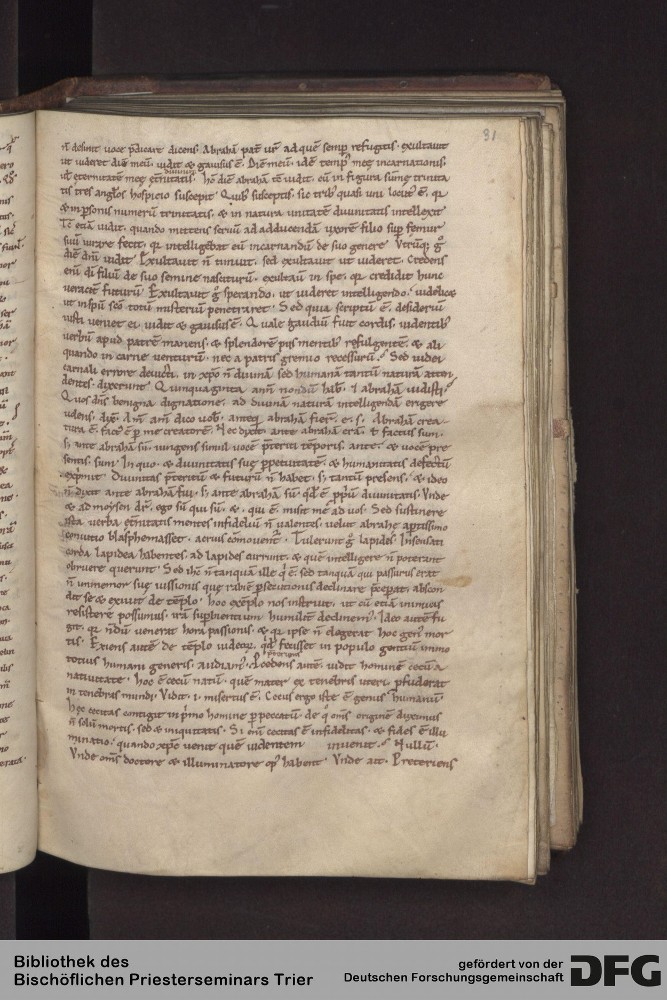 31
n̄ desinit uoce p̄dicare dicens. Abrahā pat̄ ur̄ ad quē semp̲ refugitis. exultauit
ut uideret diē meū. uidit & gauisus ē. Diē meū. idē temp̲ meę incarnationis.
diuinitatis
ut eternitatē meę et̄nitatis. hc̄ diē abrahā tc̄ uidit. cū in figura sūmę trinita
tis tres anglos hospicio suscepit. Quib; susceptis. sic trib; quasi uni locut̄ ē. qr
& in p̲sonis numerū trinitatis. & in natura unitatē diuinitatis intellexit.
Tc̄ etiā uidit. quando mittens seruū ad adducendā uxorē filio sup̲ femur
suū iurare fecit. qr intelligebat eū incarnandū de suo genere. Vtrūq; g̊
diē dn̄i uidit. Exultauit n̄ timuit. sed exultauit ut uideret. Credens
enī dī filiū de suo semine nasciturū. exultauit in spe. qr credidit hunc
ueracit̄ futurū. Exultauit g̊ sperando. ut uideret intelligendo.
ut in sp̄u sc̄o totū misteriū penetraret. Sed quia scriptū ē. desideriū
iusti ueniet ei uidit & gauisus ē. Quale gaudiū fuit cordis. uidentis
uerbū apud patrē manens. & splendorē piis mentib; refulgentē. & ali
quando in carne uenturū. nec a patris gremio recessurū. Sed iudei
carnali errore deuicti. in xp̄o n̄ diuinā sed humanā tantū naturā atten
dentes. dixerunt. Quinquaginta ann̄ nondū hab̄. & abrahā uidisti?
Quos dn̄s benigna dignatione. ad diuinā naturā intelligendā erigere
uolens. dix̄. Am̄ am̄ dico uob̄. anteq̄ abrahā fieret. e. s. Abrahā crea
tura ē. fact̄ ē p̲ me creatorē. Nec dixit. ante abrahā erā. ł factus sum.
s; ante abrahā sū. iungens simul uocē p̄teriti tēporis. ante. & uocē pre
sentis. sum. In quo & diuinitatis suę p̲petuitatē. & humanitatis defectū
exp̲mit. Diuinitas p̄teritū & futurū n̄ habet. s; tantū presens. & ideo
n̄ dixit ante abrahā fui. s; ante abrahā sū. qd̄ ē p̲priū diuinitatis. Vnde
& ad moysen dr̄. ego sū qui sū. & qui ē. misit me ad uos. Sed sustinere
ista uerba et̄nitatis mentes infideliū n̄ ualentes. uelut abrahę apertissimo
conuitio blasphemasset. aceruis cōmouent̄. Tulerunt g̊ lapides. Insensati
corda lapidea habentes. ad lapides currunt. & quē intelligere n̄ poterant
obruere querunt. Sed ihc̄ n̄ tanquā ille q̇ ē. sed tanquā qui passurus erat
n̄ inmemor suę iussionis quę rabiē p̲secutionis declinare p̄cep̲at. abscon
dit se & exiuit de tēplo. hoc exēplo nos instruit. ut cū etiā inimicis
resistere possumus. irā superbientium humilit̄ declinem̄. Ideo autē fu
git. qr nōdū uenerat hora passionis. & qr ipse n̄ elegerat hoc gen̄ mor
tis. Exiens autē de tēplo iudeor̄. qd̄ fecisset in populo gentiū immo
totius humani generis. audiam̄. Preteriens autē uidit hominē cecū a
natiuitate. hoc ē cecū natū. quē mater ex tenebris uteri p̲fudorat
in tenebras mundi. Vidit .i. misertus ē. Cecus ergo iste ē genus humanū.
Hęc cecitas contigit in p̲mo homine p̲ peccatū. de q̊ om̄s originē duximus
n̄ solū mortis. sed & iniquitatis. Si om̄ cecitas ē infidelitas. & fides ē illu
minatio. quando xp̄c uenit quē uidentem inuenit? Nullū.
Vnde om̄s doctore & illuminatore op̲ habent. Vnde ait. Preteriens
Bibliothek des
Bischöflichen Priesterseminars Trier
gefördert von der
Deutschen Forschungsgemeinschaft
DFG